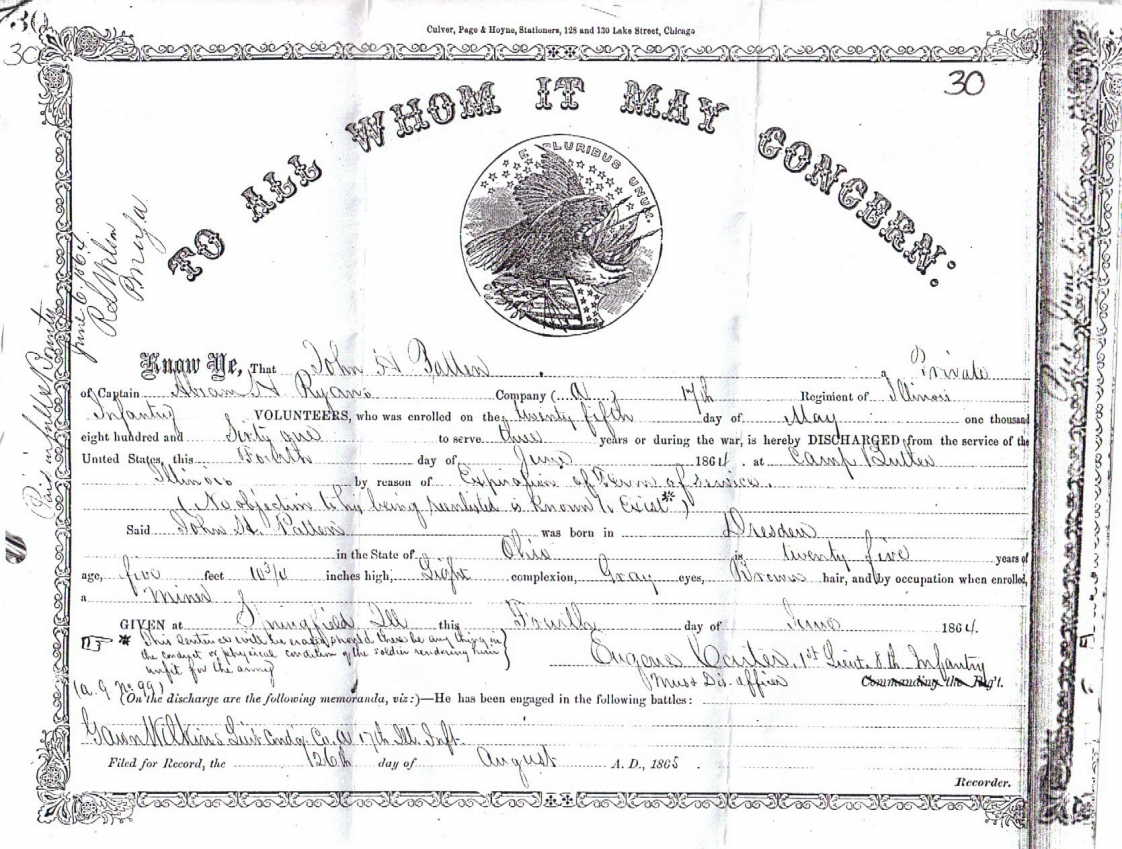 Culver, Page & Hoyne, Stationers, 128 and 130 Lake Street, Chicago
30
30
30
TO ALL WHOM IT MAY CONCERN:
E PLURIBUS UNUM
June 6 1864
Paid in full & Bounty
Know Ye, That John H Patten a Private
of Captain Abram H Ryans Company (A) 17th Regiment of Illinois
Infantry VOLUNTEERS, who was enrolled on the twenty fifth day of May one thousand
eight hundred and Sixty one to serve Three years or during the war, is hereby DISCHARGED from the service of the
United States, this Fourth day of June 1864. at Camp Butler
Illinois by reason of Expiration of Term of Service.
(No objection to his being reenlisted is Known to Exist*)
Said John H. Patten was born in Dresden
in the State of Ohio is twenty five years of
age, five feet 10 3/4 inches high, Light complexion, Gray eyes, Brown hair, and by occupation when enrolled,
a Miner
GIVEN at Springfield Ill this Fourth day of June 1864.
* This sentence will be erased should there be any thing in
the conduct or physical condition of the soldier rendering him
unfit for the army
Eugene Carter, 1st Lieut. 8th Infantry
Must Dis. officer Commanding the Reg't.
(A. G No. 99)
(On the discharge are the following memoranda, viz:)—He has been engaged in the following battles:
Wilkins Lieut Comdg. Co. A 17th Ill. Inft.
Filed for Record, the 126th day of August A. D., 1865.
Recorder.